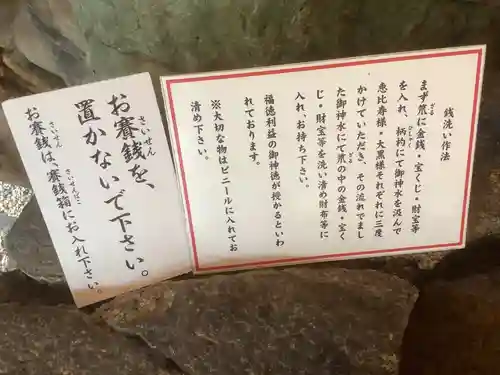 銭洗い作法
まず笊に金銭・宝くじ・財宝等
を入れ、柄杓にて御神水を汲んで
恵比寿様・大黒様それぞれに三度
かけていただき、その流れでまし
た御神水にて笊の中の金銭・宝く
じ・財宝等を洗い清め財布等に
入れ、お待ち下さい。
福徳利益の御神徳が授かるといわ
れております。
※大切な物はビニールに入れてお
清め下さい。
お賽銭を、
置かないで下さい。
お賽銭は、賽銭箱にお入れ下さい。